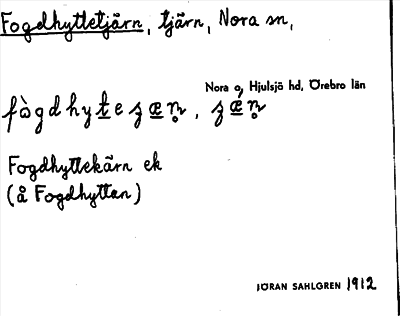 Fogdhyttetjärn, tjärn, Nora sn,
Nora o. Hjulsjö hd, Örebro län
fògdhyteʒæn̥, ʒæn̥
Fogdhyttekärn ek
(å Fogdhyttan)
JÖRAN SAHLGREN 1912